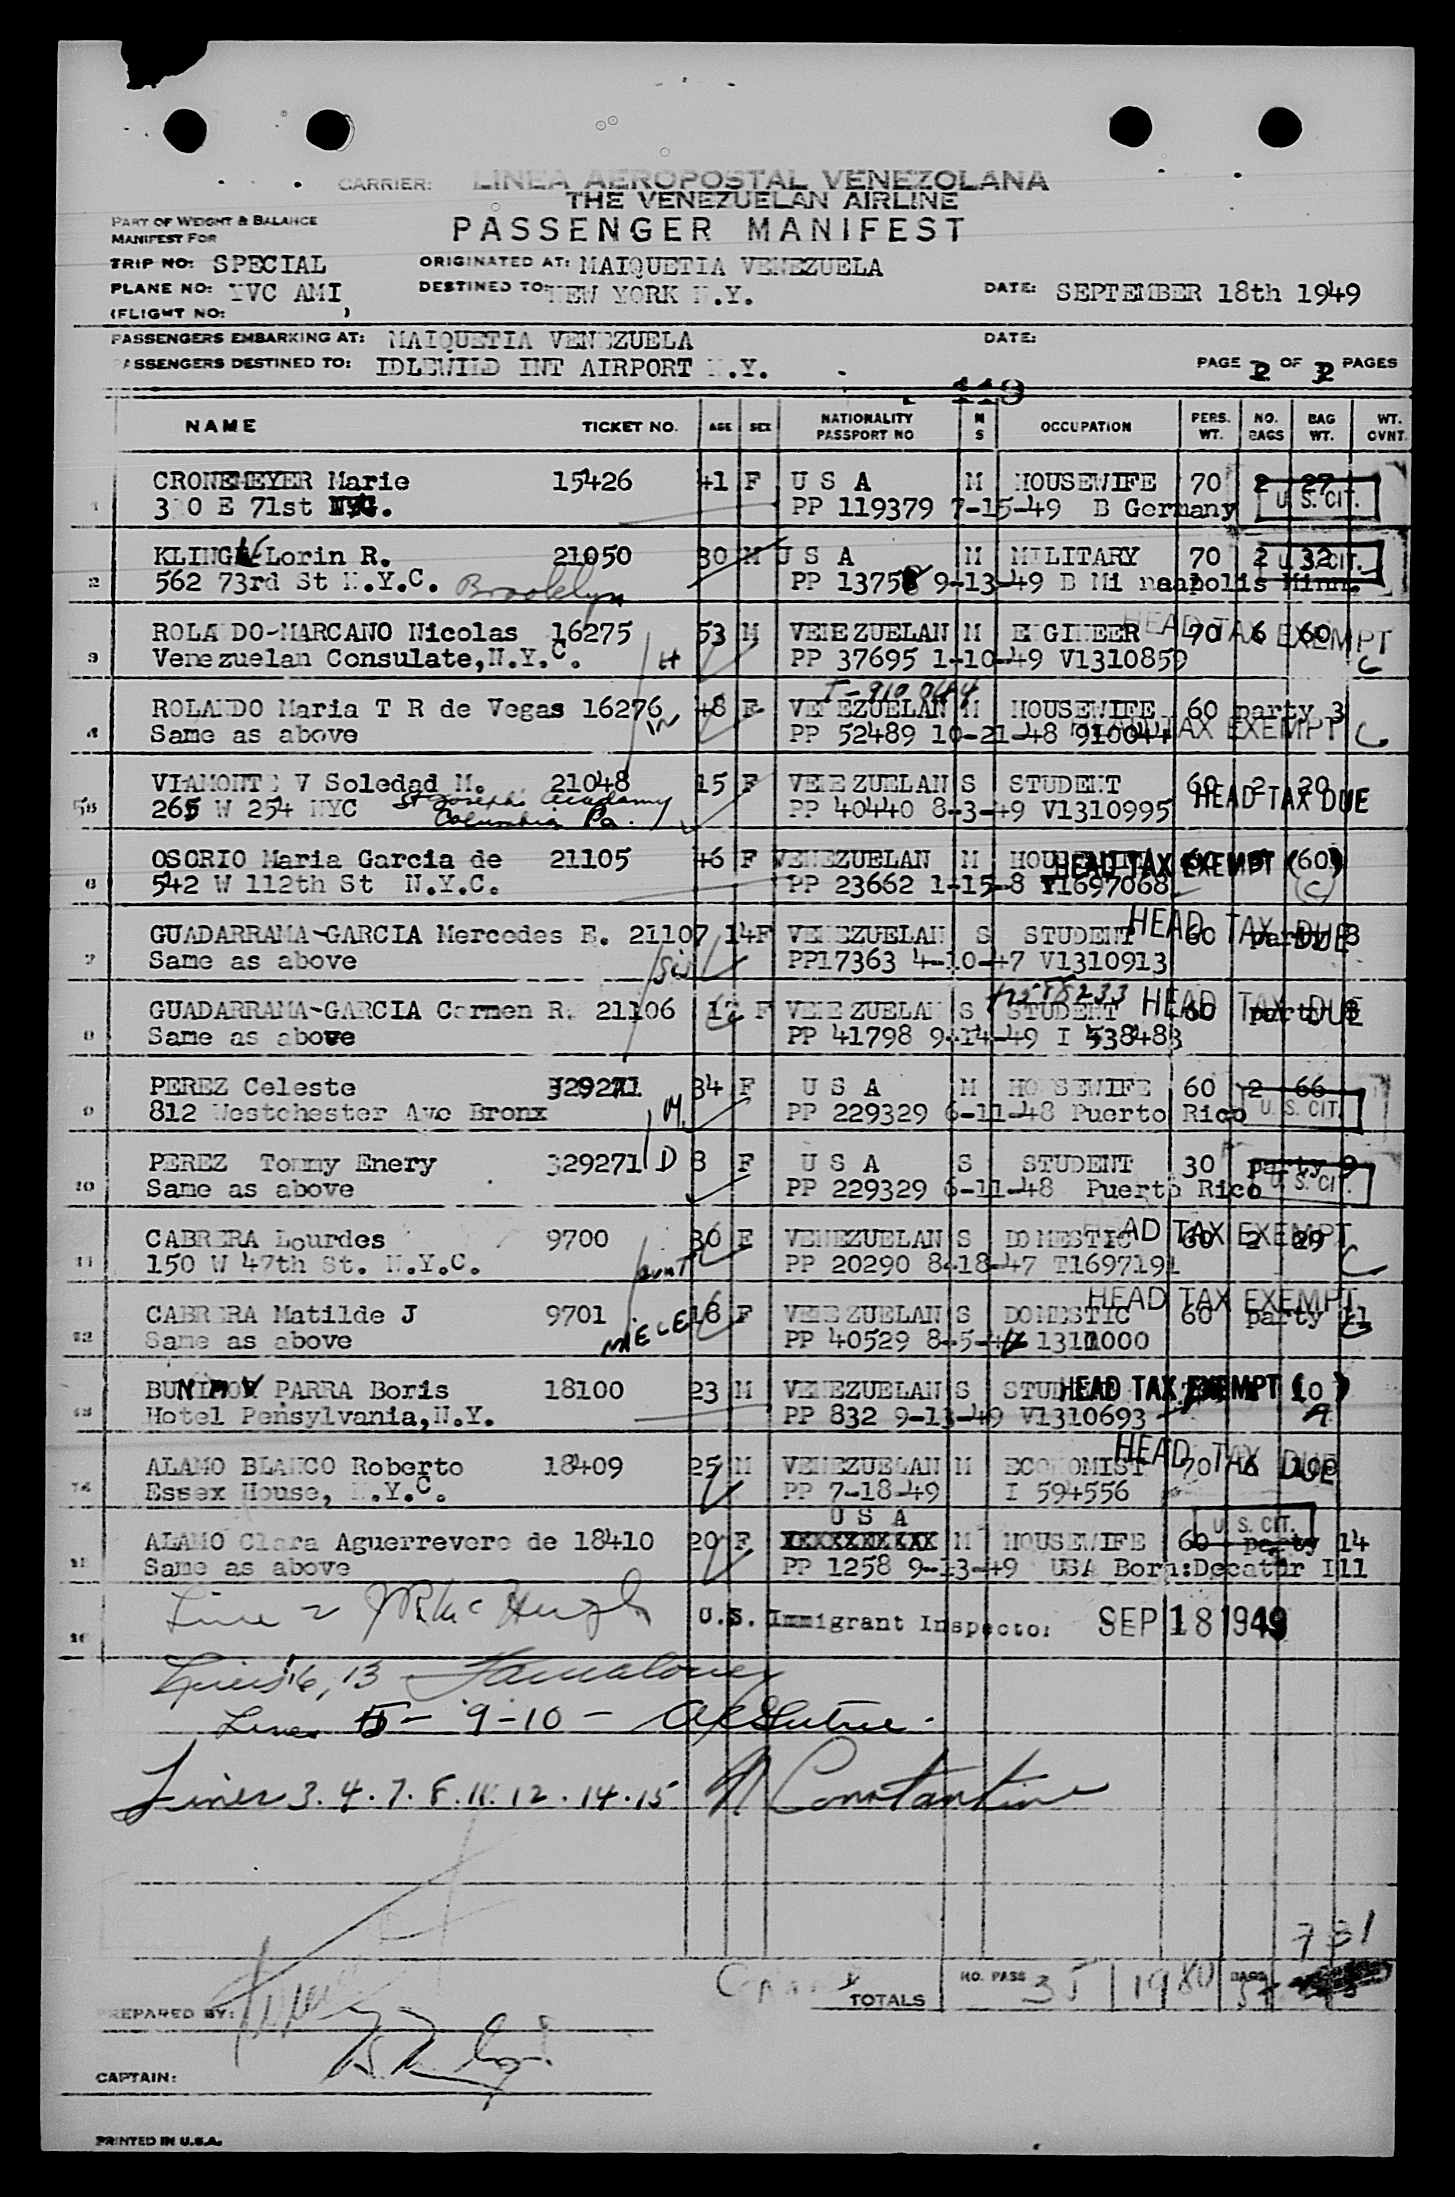 CARRIER: LINEA AEROPOSTAL VENEZOLANA
THE VENEZUELAN AIRLINE
PART OF WEIGHT & BALANCE
MANIFEST FOR
PASSENGER MANIFEST
TRIP NO: SPECIAL ORIGINATED AT: MAIQUETIA VENEZUELA
PLANE NO: YVC AMI DESTINED TO: NEW YORK N.Y. DATE: SEPTEMBER 18th 1949
(FLIGHT NO: )
PASSENGERS EMBARKING AT: MAIQUETIA VENEZUELA DATE:
PASSENGERS DESTINED TO: IDLEWILD INT AIRPORT N.Y. PAGE 2 OF PAGES
NAME TICKET NO. AGE SEX NATIONALITY PASSPORT NO M S OCCUPATION PERS. WT. NO. BAGS BAG WT. WT. GVNT.
1 CRONEMEYER Marie 15426 41 F U S A M HOUSEWIFE 70 2 27
E 71st NYC. PP 119379 7-15-49 B Germany U. S. CIT.
2 KLINGE Lorin R. 21050 30 M U S A M MILITARY 70 2 32 U. S. CIT.
562 73rd St N.Y.C. Brooklyn PP 9-13-49 B Minneapolis Minn.
3 ROLANDO-MARCANO Nicolas 16275 53 M VENEZUELAN M ENGINEER 70 6 60 HEAD TAX EXEMPT
Venezuelan Consulate, N.Y.C. H PP 37695 1-10-49 V1310859 C
T-910 0644
4 ROLANDO Maria T R de Vegas 16276 W 48 F VENEZUELAN M HOUSEWIFE 60 party 3
Same as above PP 52489 10-21-48 910044 HEAD TAX EXEMPT C
5 VIAMONTE V Soledad M. 21048 15 F VENEZUELAN S STUDENT 60 2 20
265 W 254 NYC St Josephs Academy Columbia Pa. PP 40440 8-3-49 V1310995 HEAD TAX DUE
6 OSORIO Maria Garcia de 21105 46 F VENEZUELAN M HOUSEWIFE 60 (60) HEAD TAX EXEMPT ( )
542 W 112th St N.Y.C. PP 23662 1-15-8 T1697068 (C)
7 GUADARRAMA-GARCIA Mercedes E. 21107 14 F VENEZUELAN S STUDENT 60 party 8 HEAD TAX DUE
Same as above Sis PP17363 4-10-47 V1310913
8 GUADARRAMA-GARCIA Carmen R. 21106 12 F VENEZUELAN S STUDENT 60 party 8 HEAD TAX DUE
Same as above PP 41798 9-14-49 I 538483
9 PEREZ Celeste 329271 34 F U S A M HOUSEWIFE 60 2 66
812 Westchester Ave Bronx M. PP 229329 6-11-48 Puerto Rico U. S. CIT.
10 PEREZ Tommy Enery 329271 D 8 F U S A S STUDENT 30 party 9
Same as above PP 229329 6-11-48 Puerto Rico U. S. CIT.
11 CABRERA Lourdes 9700 36 F VENEZUELAN S DOMESTIC 60 2 29 HEAD TAX EXEMPT
150 W 47th St. N.Y.C. aunt PP 20290 8-18-47 T1697191 C
12 CABRERA Matilde J 9701 18 F VENEZUELAN S DOMESTIC 60 party 11 HEAD TAX EXEMPT
Same as above NIECE PP 40529 8-5-47 1311000 C
13 PARRA Boris 18100 23 M VENEZUELAN S STUDENT 10 HEAD TAX EXEMPT ( )
Hotel Pensylvania, N.Y. PP 832 9-13-49 V1310693 A
14 ALAMO BLANCO Roberto 18409 25 M VENEZUELAN M ECONOMIST 70 6 100 HEAD TAX DUE
Essex House, N.Y.C. PP 7-18-49 I 594556
U S A
15 ALAMO Clara Aguerrevere de 18410 20 F XXXXXXXXXX M HOUSEWIFE 60 party 14 U. S. CIT.
Same as above PP 1258 9-13-49 USA Born: Decatur Ill
16 Line 2 JR McHugh U.S. Immigrant Inspector SEP 18 1949
Lines 1, 6, 13
Lines 5 - 9 - 10 -
Lines 3. 4. 7. 8. 11. 12. 14. 15 N Constantine
731
TOTALS NO. PASS 35 1980 BAGS
PREPARED BY:
CAPTAIN:
PRINTED IN U.S.A.